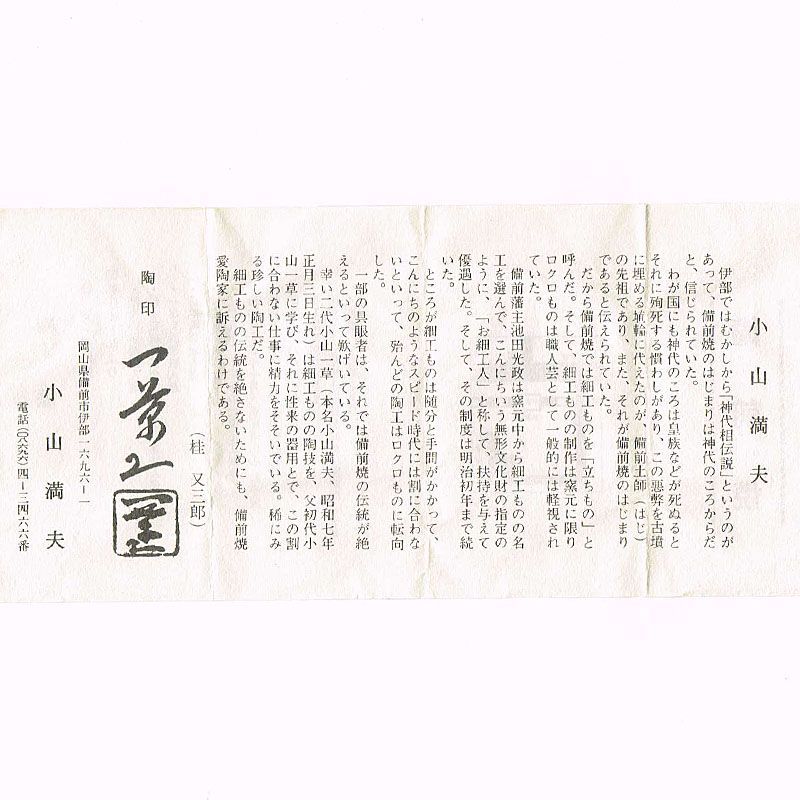 小山満夫
伊部ではむかしから「神代相伝説」というのが
あって、備前焼のはじまりは神代のころからだ
と、信じられていた。
わが国にも神代のころは皇族などが死ぬると
それに殉死する慣わしがあり、この悪弊を古墳
に埋める埴輪に代えたのが、備前土師（はじ）
の先祖であり、また、それが備前焼のはじまり
であると伝えられていた。
だから備前焼では細工ものを「立ちもの」と
呼んだ。そして、細工ものの制作は窯元に限り
ロクロものは職人芸として一般的には軽視され
ていた。
備前藩主池田光政は窯元中から細工ものの名
工を選んで、こんにちいう無形文化財の指定の
ように、「お細工人」と称して、扶持を与えて
優遇した。そして、その制度は明治初年まで続
いた。
ところが細工ものは随分と手間がかかって、
こんにちのようなスピード時代には割に合わな
いといって、殆んどの陶工はロクロものに転向
した。
一部の具眼者は、それでは備前焼の伝統が絶
えるといって歎げいている。
幸い二代小山一草（本名小山満夫、昭和七年
正月三日生れ）は細工ものの陶技を、父初代小
山一草に学び、それに性来の器用とで、この割
に合わない仕事に精力をそそいでいる。稀にみ
る珍しい陶工だ。
細工ものの伝統を絶さないためにも、備前焼
愛陶家に訴えるわけである。
（桂　又三郎）
陶印
岡山県備前市伊部一六九六ー一
小山満夫
電話（〇八六九六）四ー三四六六番